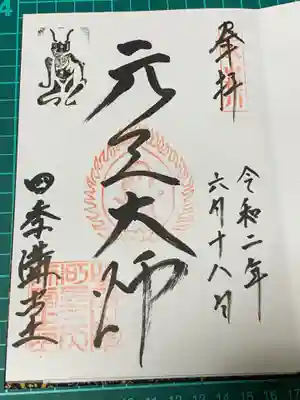 奉拝
令和二年
六月十八日
元三大師
四季講堂